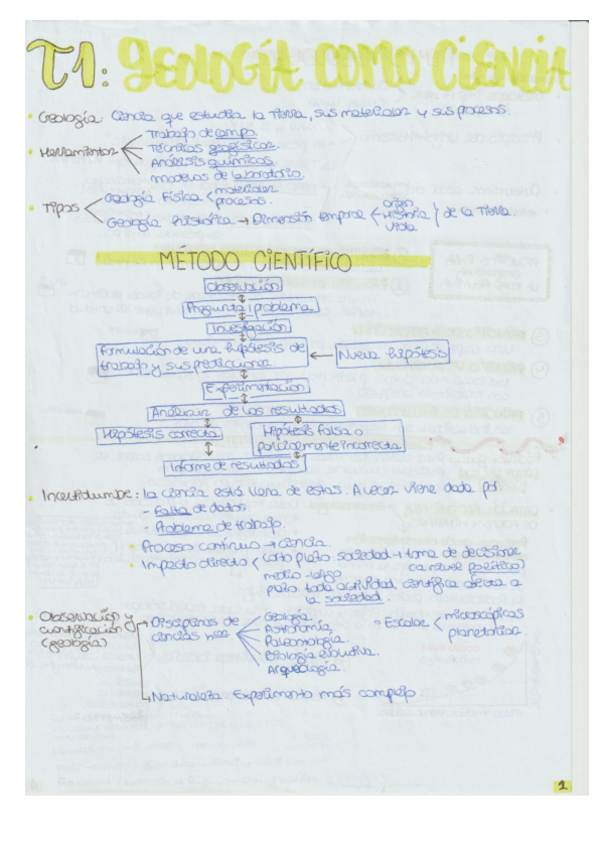 T1: GEOLOGÍA COMO CIENCIA
Geología: Ciencia que estudia la Tierra, sus materiales y sus procesos.
Herramientas
Trabajo de campo.
Técnicas geofísicas.
Análisis químicos.
modelos de laboratorio.
Tipos
Geología Física
materiales
procesos.
Geología histórica → Dimensión temporal
origen
Historia
vida
de la Tierra.
MÉTODO CIENTÍFICO
Observación
Pregunta / problema
Investigación
Formulación de una hipótesis de trabajo y sus predicciones.
← Nueva hipótesis
Experimentación
Análisis de los resultados
Hipótesis correcta
Hipótesis falsa o parcialmente incorrecta
Informe de resultados
Incertidumbre: la ciencia está llena de estas. A veces viene dada por:
- Falta de datos.
- Problema de trabajo.
Proceso continuo → ciencia.
Impacto directo
corto plazo: sociedad → toma de decisiones
(a nivel político)
medio-largo
plazo toda actividad científica afecta a
la sociedad.
Observación y
cuantificación
(geología)
Disciplinas de
ciencias
Geología.
Astronomía.
Paleontología.
Biología evolutiva.
Arqueología.
Escalas
microscópicas
planetarias.
Naturaleza: Experimento más complejo.
1